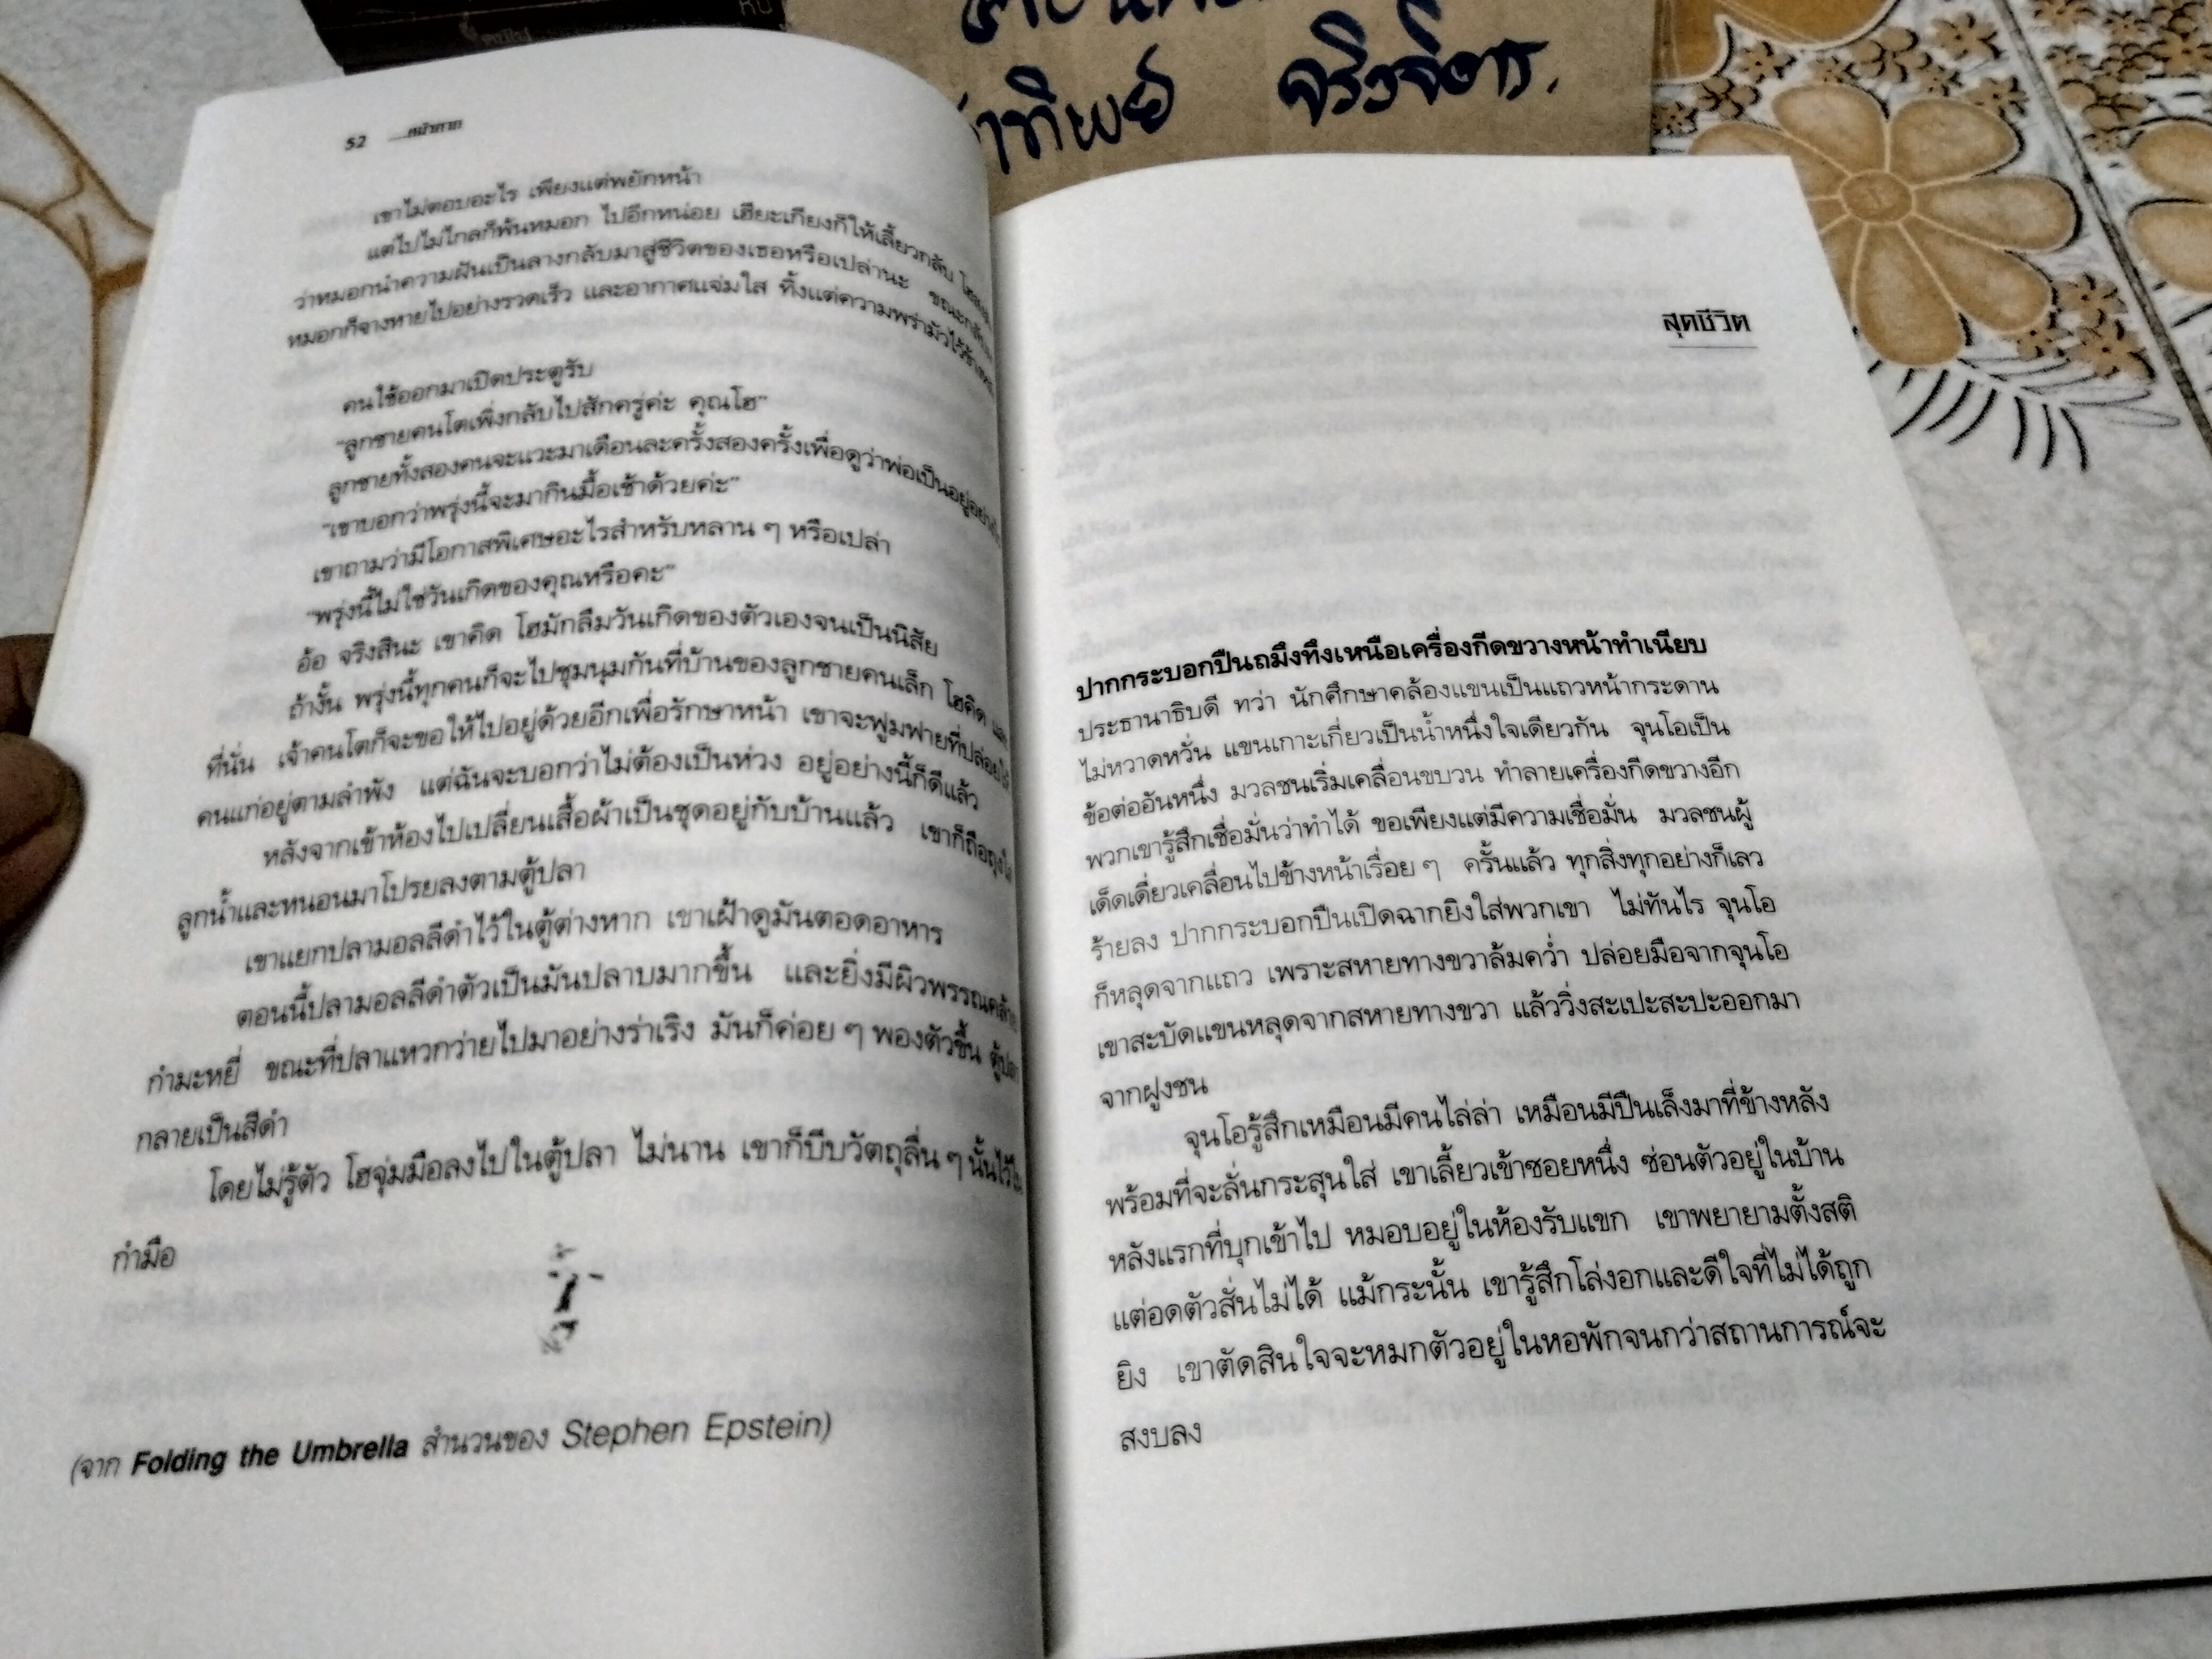 จริงจิตร.
52 ....หน้ากาก
เขาไม่ตอบอะไร เพียงแต่พยักหน้า
แต่ไปไม่ไกลก็พ้นหมอก ไปอีกหน่อย เฮียะเกียงก็ให้เลี้ยวกลับ
ว่าหมอกนำความฝันเป็นลางกลับมาสู่ชีวิตของเธอหรือเปล่านะ
หมอกก็จางหายไปอย่างรวดเร็ว และอากาศแจ่มใส ทิ้งแต่ความพร่ามัวไว้ข้างหลัง
คนใช้ออกมาเปิดประตูรับ
“ลูกชายคนโตเพิ่งกลับไปสักครู่ค่ะ คุณโฮ”
ลูกชายทั้งสองคนจะแวะมาเดือนละครั้งสองครั้งเพื่อดูว่าพ่อเป็นอยู่อย่างไร
“เขาบอกว่าพรุ่งนี้จะมากินมื้อเช้าด้วยค่ะ”
เขาถามว่ามีโอกาสพิเศษอะไรสำหรับหลาน ๆ หรือเปล่า
“พรุ่งนี้ไม่ใช่วันเกิดของคุณหรือคะ”
อ้อ จริงสินะ เขาคิด โฮมักลืมวันเกิดของตัวเองจนเป็นนิสัย
ถ้างั้น พรุ่งนี้ทุกคนก็จะไปชุมนุมกันที่บ้านของลูกชายคนเล็ก โฮคิด และ
ที่นั่น เจ้าคนโตก็จะขอให้ไปอยู่ด้วยอีกเพื่อรักษาหน้า เขาจะฟูมฟายที่ปล่อยให้
คนแก่อยู่ตามลำพัง แต่ฉันจะบอกว่าไม่ต้องเป็นห่วง อยู่อย่างนี้ก็ดีแล้ว
หลังจากเข้าห้องไปเปลี่ยนเสื้อผ้าเป็นชุดอยู่กับบ้านแล้ว เขาก็ถือถุงใส่
ลูกน้ำและหนอนมาโปรยลงตามตู้ปลา
เขาแยกปลามอลลีดำไว้ในตู้ต่างหาก เขาเฝ้าดูมันตอดอาหาร
ตอนนี้ปลามอลลีดำตัวเป็นมันปลาบมากขึ้น และยิ่งมีผิวพรรณคล้าย
กำมะหยี่ ขณะที่ปลาแหวกว่ายไปมาอย่างร่าเริง มันก็ค่อย ๆ พองตัวขึ้น ตู้ปลา
กลายเป็นสีดำ
โดยไม่รู้ตัว โฮจุ่มมือลงไปในตู้ปลา ไม่นาน เขาก็บีบวัตถุลื่น ๆ นั้นไว้ใน
กำมือ
(จาก Folding the Umbrella สำนวนของ Stephen Epstein)
สุดชีวิต
ปากกระบอกปืนถมึงทึงเหนือเครื่องกีดขวางหน้าทำเนียบ
ประธานาธิบดี ทว่า นักศึกษาคล้องแขนเป็นแถวหน้ากระดาน
ไม่หวาดหวั่น แขนเกาะเกี่ยวเป็นน้ำหนึ่งใจเดียวกัน จุนโอเป็น
ข้อต่ออันหนึ่ง มวลชนเริ่มเคลื่อนขบวน ทำลายเครื่องกีดขวางอีก
พวกเขารู้สึกเชื่อมั่นว่าทำได้ ขอเพียงแต่มีความเชื่อมั่น มวลชนผู้
เด็ดเดี่ยวเคลื่อนไปข้างหน้าเรื่อย ๆ ครั้นแล้ว ทุกสิ่งทุกอย่างก็เลว
ร้ายลง ปากกระบอกปืนเปิดฉากยิงใส่พวกเขา ไม่ทันไร จุนโอ
ก็หลุดจากแถว เพราะสหายทางขวาล้มคว่ำ ปล่อยมือจากจุนโอ
เขาสะบัดแขนหลุดจากสหายทางขวา แล้ววิ่งสะเปะสะปะออกมา
จากฝูงชน
จุนโอรู้สึกเหมือนมีคนไล่ล่า เหมือนมีปืนเล็งมาที่ข้างหลัง
พร้อมที่จะลั่นกระสุนใส่ เขาเลี้ยวเข้าซอยหนึ่ง ซ่อนตัวอยู่ในบ้าน
หลังแรกที่บุกเข้าไป หมอบอยู่ในห้องรับแขก เขาพยายามตั้งสติ
แต่อดตัวสั่นไม่ได้ แม้กระนั้น เขารู้สึกโล่งอกและดีใจที่ไม่ได้ถูก
ยิง เขาตัดสินใจจะหมกตัวอยู่ในหอพักจนกว่าสถานการณ์จะ
สงบลง